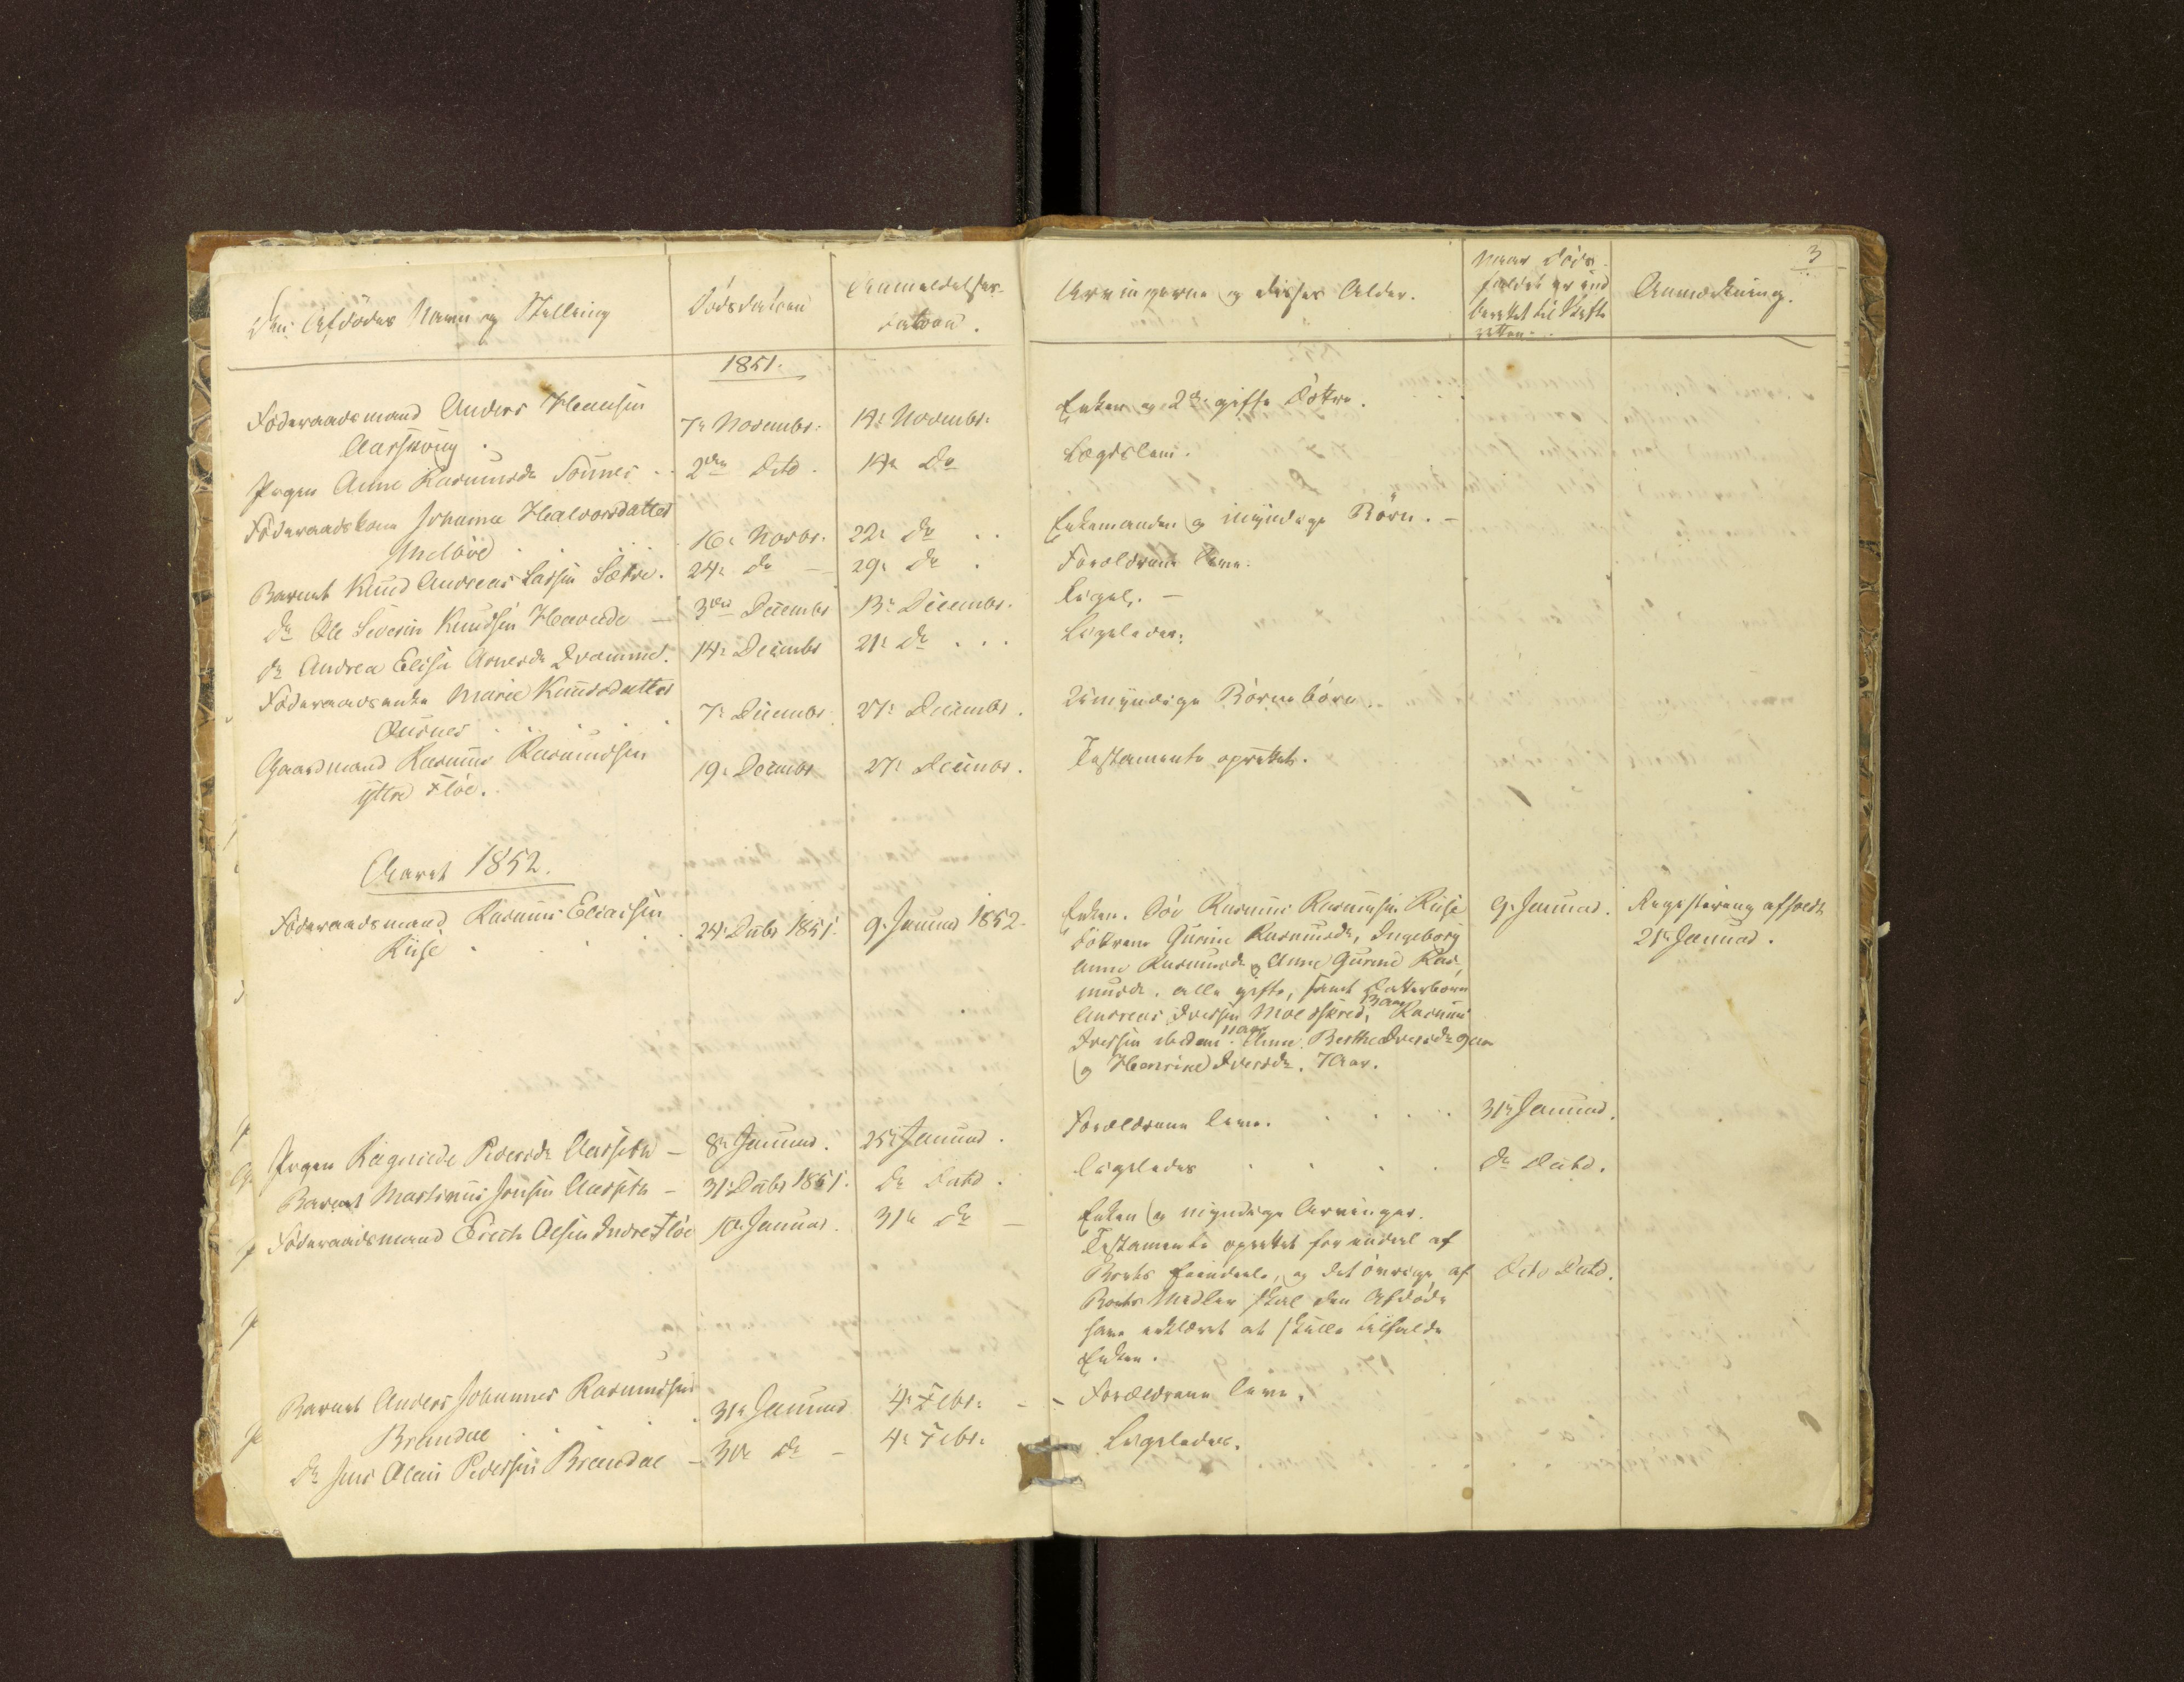 3
Den Afdödes Navn og Stilling
Dödsdatoen
Anmeldelses-
datoen.
Arvingerne og disses Alder.
Naar Döds-
faldet er ind-
berettet til Skifte
retten.
Anmærkning.
1851.
Föderaadsmand Anders Hansen
Aarskoug.
7de Novembr.
14de Novembr.
Enken og 2de gifte Döttre.
Pigen Anne Rasmusdr
2den Dito.
14de Do
Lægdslem.
Föderaadskone Johanna Halvorsdatter
Melböe
16de Novbr.
22de Do
Enkemanden og myndige Börn. -
Barnet Knud Andreas Larsen Sætre.
24de do -
29de do
Forældrene leve.
do Ole Severin Knudsen -
3die Decembr
13de Decembr.
Ligel. -
do Andrea Elise Arnesdr
14de Decembr
21de do
Ligeledes.
Föderaadsenke Marie Knudsdatter
7de Decembr
27de Decembr.
Umyndige Börnebörn.
Gaardmand Rasmus Rasmussen
ytre Flöe.
19de Decembr
27de Decembr.
Testamente oprettet.
Aaret 1852.
Föderaadsmand Rasmus Eliassen
Riise
24de Decbr 1851.
9de Januar 1852.
Enken. Sön Rasmus Rasmussen Riise
Döttrene Gurine Rasmusdr, Ingeborg
Anne Rasmusdr og Anne Gurine Ras-
musdr. alle gifte, samt Datterbörn
Andreas Iversen Moldskred, 13 Aar, Rasmus
Iversen ibidem 11 Aar. Anne Berthe Iversdr 9 Aar
og Henrine Iversdr. 7 Aar.
9de Januar.
Registrering afholdt
21de Januar.
Pigen Ragnilde Pedersdr Aarseth -
8de Januar.
25de Januar.
Forældrene leve.
31te Januar.
Barnet Martinus Jensen Aarseth -
31te Decbr 1851.
do Dato.
ligeledes
do Dato.
Föderaadsmand Erich Olsen Indre Flöe
10de Januar.
31te do -
Enken og myndige Arvinger.
Testamente oprettet for endeel af
Boets Eiendele, og det övrige af
Boets Midler skal den Afdöde
have erklæret at skulle tilfalde
Enken.
Dito Dato.
Barnet Anders Johannes Rasmussen
Brandal
31te Januar
4de Febr. -
- Forældrene leve.
do Jens Olaus Pedersen Brandal
- 30te do -
4de Febr.
Ligeledes.